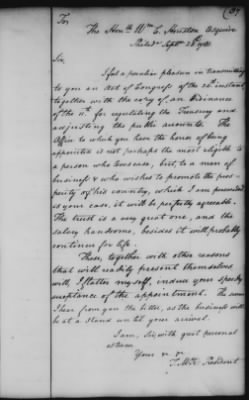 To
The Honble. Wm. C. Houston Esquire
Philada. Septr. 28th. 1781
Sir,
I feel a peculiar pleasure in transmitting
to you an Act of Congress of the instant
together with the copy of an Ordinance
of the 11th. for regulating the Treasury and
adjusting the public accounts. The
Office to which you have the honor of being
appointed is not perhaps the most eligible to
a person who loves ease, but, to a man of
business & who wishes to promote the pros-
perity of his country, which I am persuaded
is your case, it will be perfectly agreeable.
The trust is a very great one, and the
salary handsome, besides it will probably
continue for life.
These, together with other reasons
that will readily present themselves
will, I flatter myself, induce your speedy
acceptance of the appointment. The sooner
I hear from you the better, as the business will
be at a stand until your arrival.
I am, Sir, with great personal
esteem
Your &c. &c.
T. M:K. President